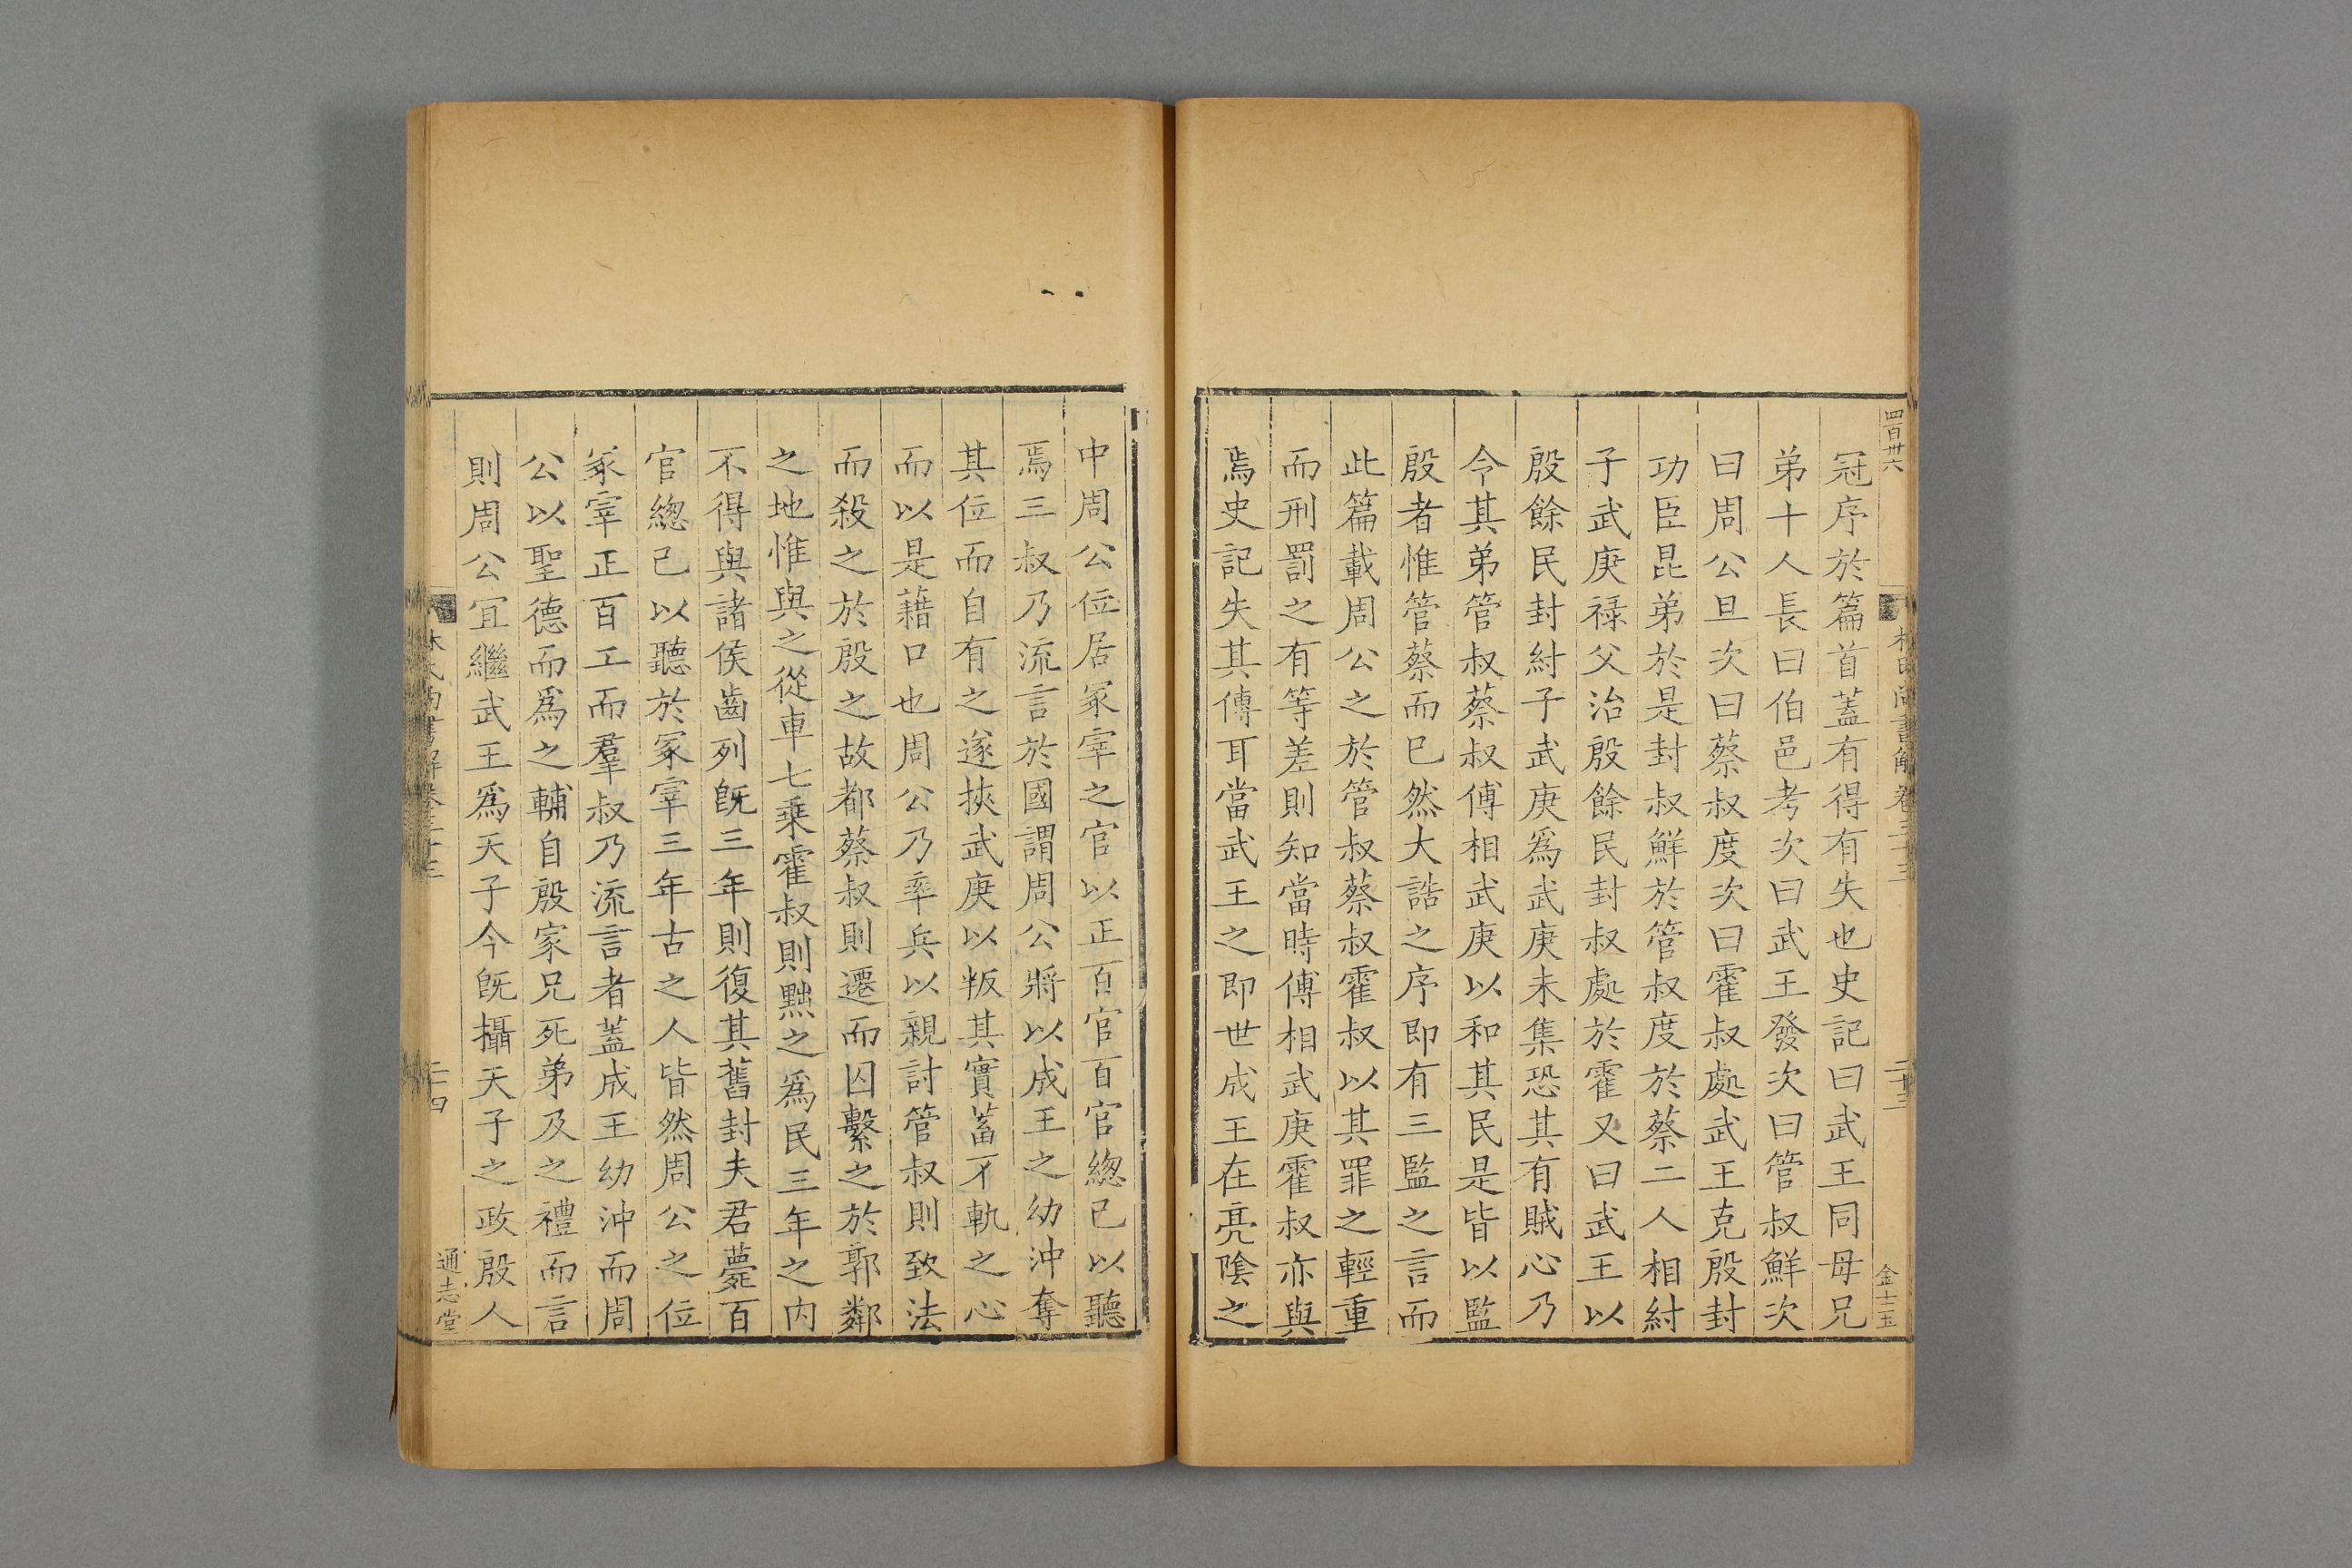 四百卅六
冠序於篇首蓋有得有失也史記曰武王同母兄
弟十人長曰伯邑考次曰武王發次曰管叔鮮次
曰周公旦次曰蔡叔度次曰霍叔處武王克殷封
功臣昆弟於是封叔鮮於管叔度於蔡二人相紂
子武庚祿父治殷餘民封叔處於霍又曰武王以
殷餘民封紂子武庚爲武庚未集恐其有賊心乃
令其弟管叔蔡叔傅相武庚以和其民是皆以監
殷者惟管蔡而已然大誥之序即有三監之言而
此篇載周公之於管叔蔡叔霍叔以其罪之輕重
而刑罰之有等差則知當時傅相武庚霍叔亦與
焉史記失其傳耳當武王之即世成王在亮陰之
中周公位居冢宰之官以正百官百官總己以聽
焉三叔乃流言於國謂周公將以成王之幼沖奪
其位而自有之遂挾武庚以叛其實蓄不軌之心
而以是藉口也周公乃率兵以親討管叔則致法
而殺之於殷之故都蔡叔則遷而囚繫之於郭鄰
之地惟與之從車七乗霍叔則黜之爲民三年之内
不得與諸侯齒列旣三年則復其舊封夫君薨百
官總己以聽於冢宰三年古之人皆然周公之位
冢宰正百工而羣叔乃流言者蓋成王幼沖而周
公以聖德而爲之輔自殷家兄死弟及之禮而言
則周公宜繼武王爲天子今旣攝天子之政殷人
通志堂